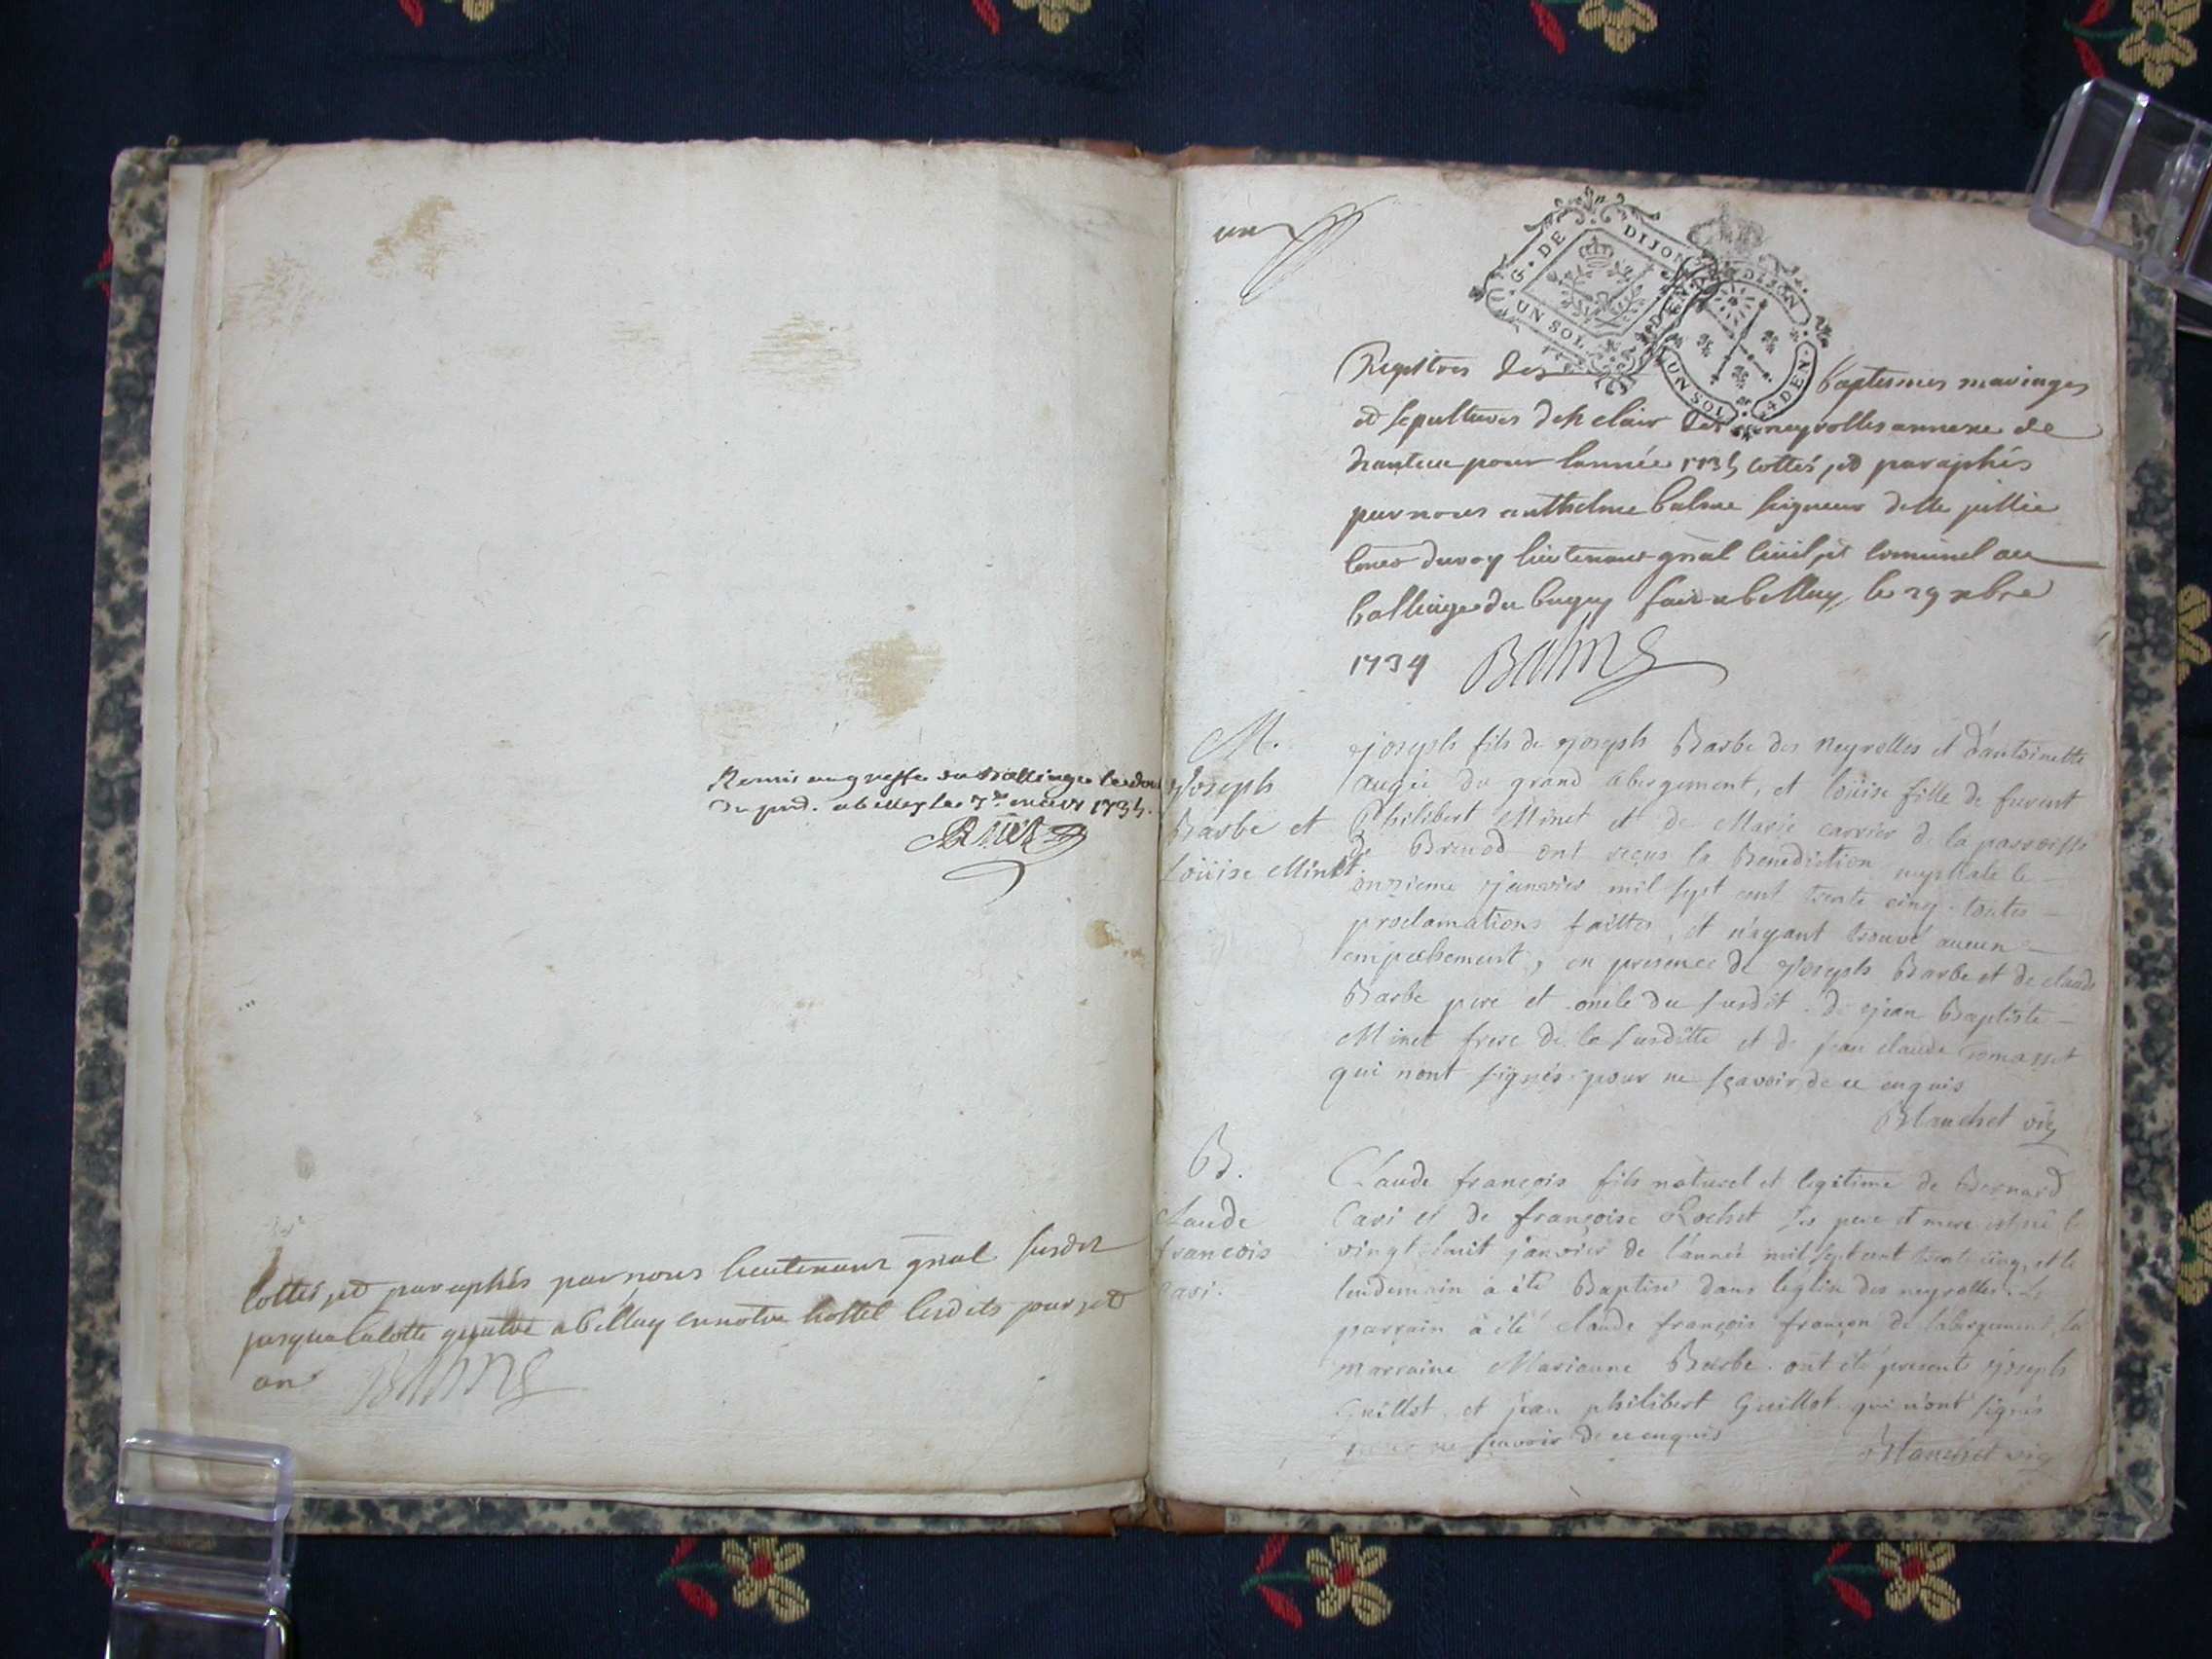 Remis au greffe du Balliage
du pnt. a belley le 7e 1735.
Cottés, et paraphés par nous lieutenant gnal susdit
jusqua la cotte quatre a belley en notre hostel lesdits jour, et
an Balme
un
G. DE DIJON
UN SOL
DIJON
UN SOL 4 DEN.
Registres des baptesmes mariages
et sepultures de st clair des neyrolles annexe de
nantua pour lannée 1735 cottés, et paraphés
par nous anthelme balme seigneur de ste jullie
coner du roy lieutenant gnal civil, et criminel au
balliage du bugey fait a belley, le 29 xbre
1734 Balme
M.
Joseph
Barbe et
Loüise Minet
joseph fils de joseph Barbe des neyrolles et d'antoinette
augié du grand abergement, et loüise fille de furent
Philibert Minet et de Marie carrier de la parroisse
de Brenod ont reçus la Benediction nuptiale le
onzieme janvier mil sept cent trente cinq. toutes
proclamations faittes, et n'ayant trouvé aucun
empechement, en presence de joseph Barbe et de claude
Barbe pere et oncle du susdit. de jean Baptiste
Minet frere de la susditte et de jean claude tomasset
qui n'ont signés pour ne sçavoir, de ce enquis
Blanchet vic
B.
claude
francois
Cavi.
Claude françois fils naturel et legitime de Bernard
Cavi et de françoise Rochet ses pere et mere est né le
vingt huit janvier de l'année mil sept cent trente cinq, et le
lendemain à été Baptisé dans l'eglise des neyrolles. Le
parrain à été claude françois françon de l'abergement, la
marraine Marianne Barbe. ont été presents joseph
Guillot, et jean philibert Guillot qui n'ont signés
pour ne sçavoir de ce enquis
Blanchet vic